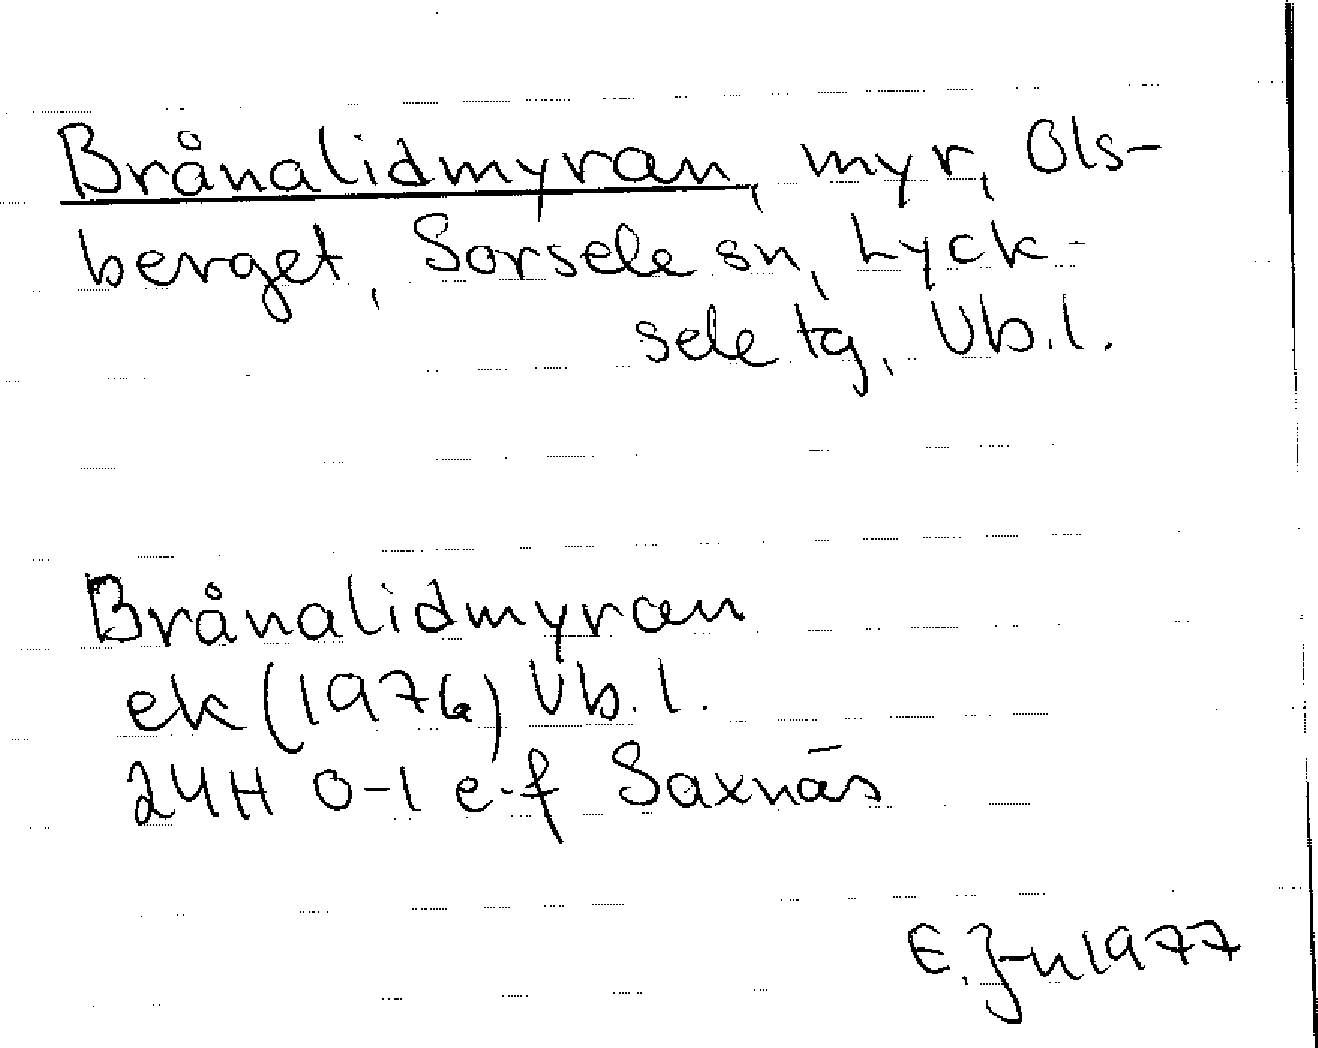 Brånalidmyran, myr, Ols-
berget, Sorsele sn, Lyck-
sele tg, Vb.l.
Brånalidmyran
ek (1976) Vb.l.
24H 0-1 e-f Saxnäs
E. J-n 1977